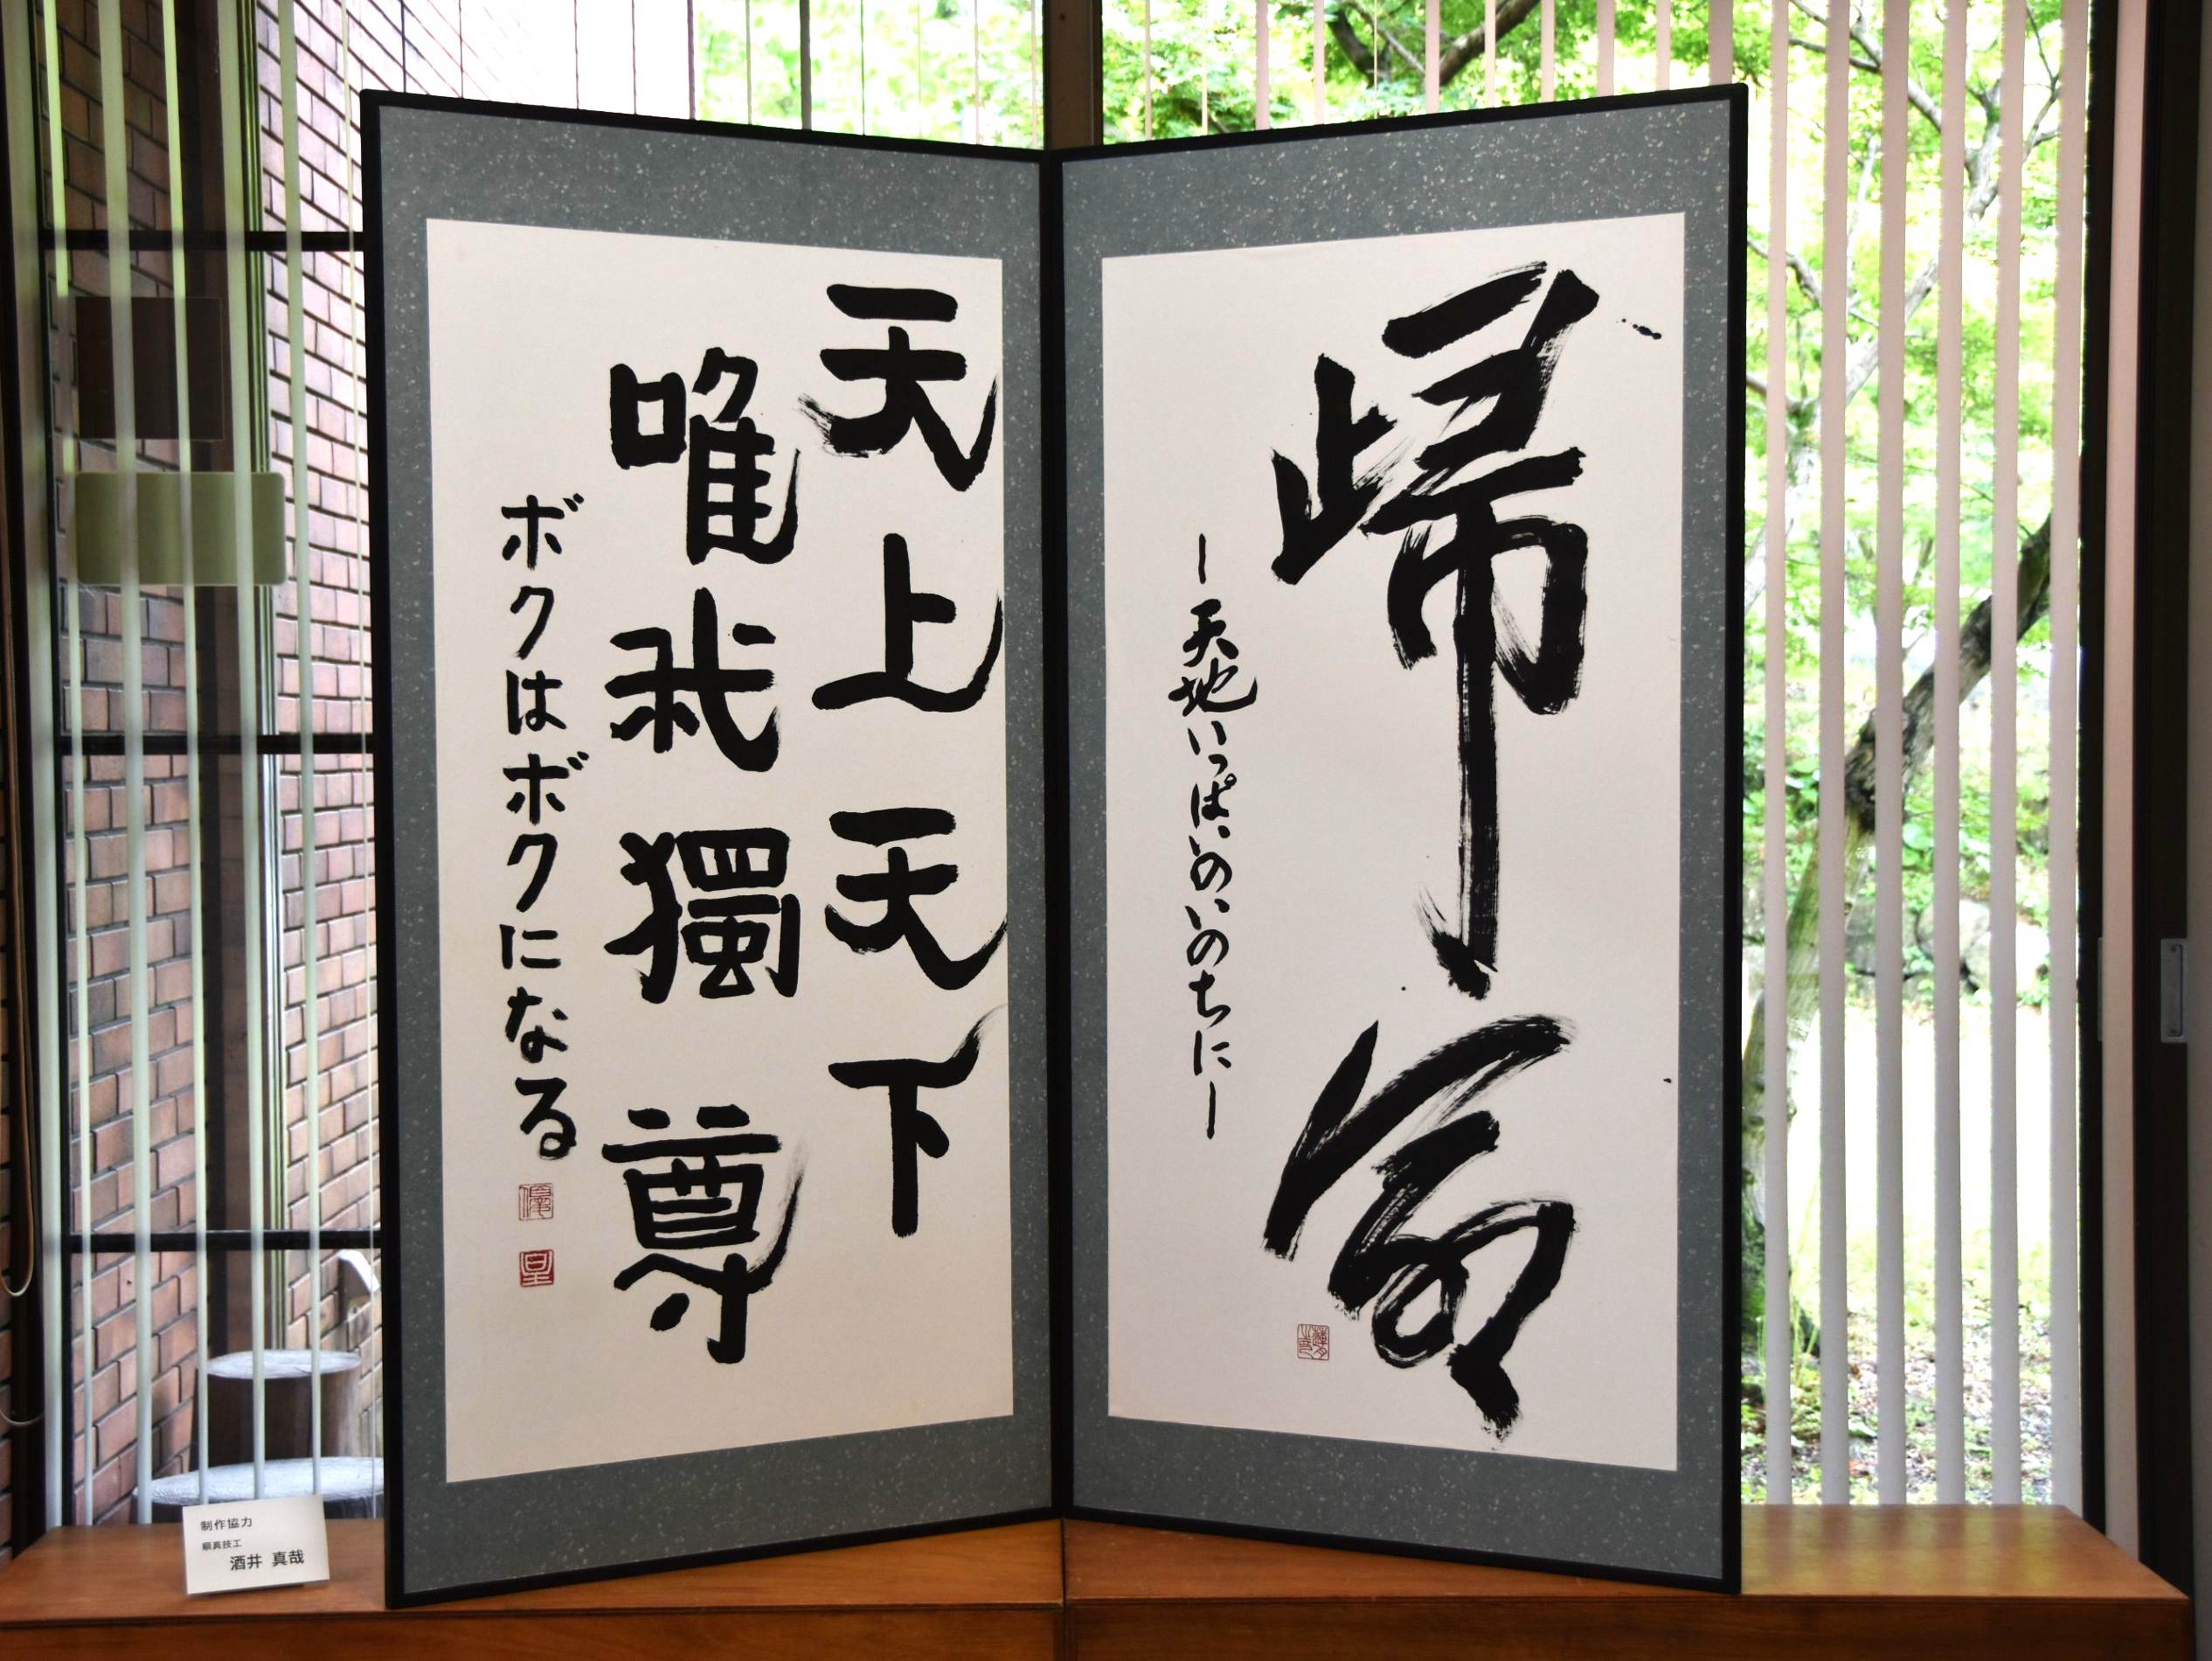 歸命
ー天地いっぱいのいのちにー
天上天下
唯我獨尊
ボクはボクになる
制作協力
額真技工
酒井 真哉